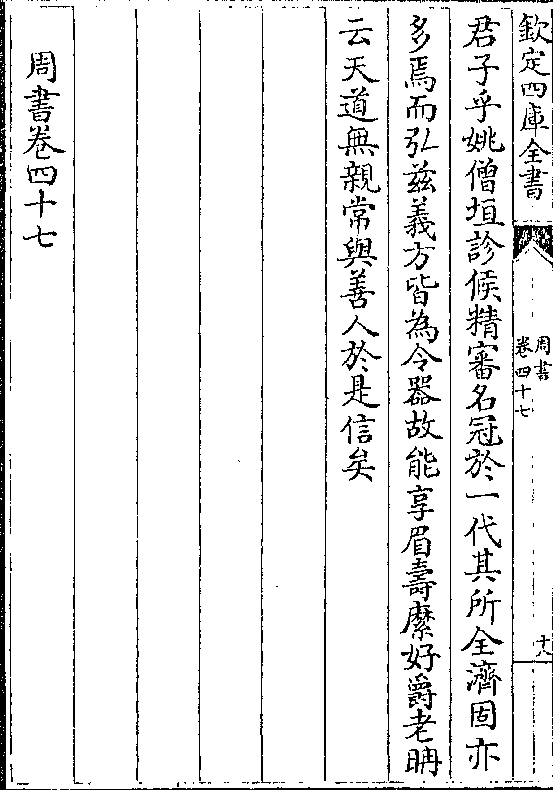 欽定四庫全書
周書
卷四十七
十八
君子乎姚僧垣診候精審名冠於一代其所全濟固亦
多焉而弘茲義方皆為令器故能享眉壽縻好爵老聃
云天道無親常與善人於是信矣
周書卷四十七